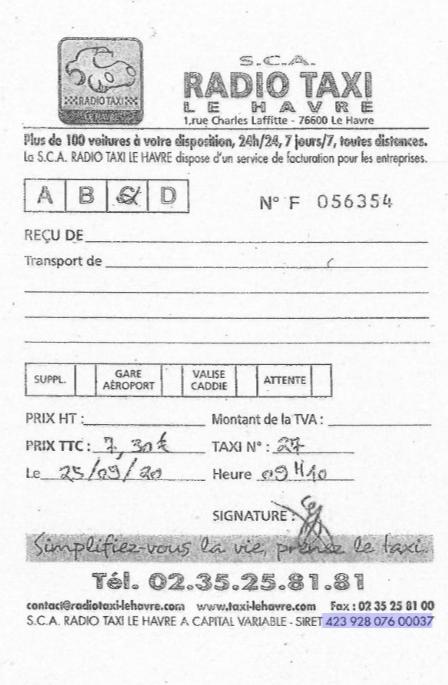 RADIO TAXI
LE HAVRE
S.C.A.
RADIO TAXI
LE HAVRE
1,rue Charles Laffitte - 76600 Le Havre
Plus de 100 voitures à votre disposition, 24h/24, 7 jours/7, toutes distances.
La S.C.A. RADIO TAXI LE HAVRE dispose d'un service de facturation pour les entreprises.
A B C D
N° F 056354
REÇU DE
Transport de
SUPPL. GARE AÉROPORT VALISE CADDIE ATTENTE
PRIX HT : Montant de la TVA :
PRIX TTC : 7,30€ TAXI N° : 27
Le 25/09/20 Heure 09H10
SIGNATURE :
Simplifiez-vous la vie, prenez le taxi.
Tél. 02.35.25.81.81
contact@radiotaxi-lehavre.com www.taxi-lehavre.com Fax : 02 35 25 81 00
S.C.A. RADIO TAXI LE HAVRE A CAPITAL VARIABLE - SIRET 423 928 076 00037